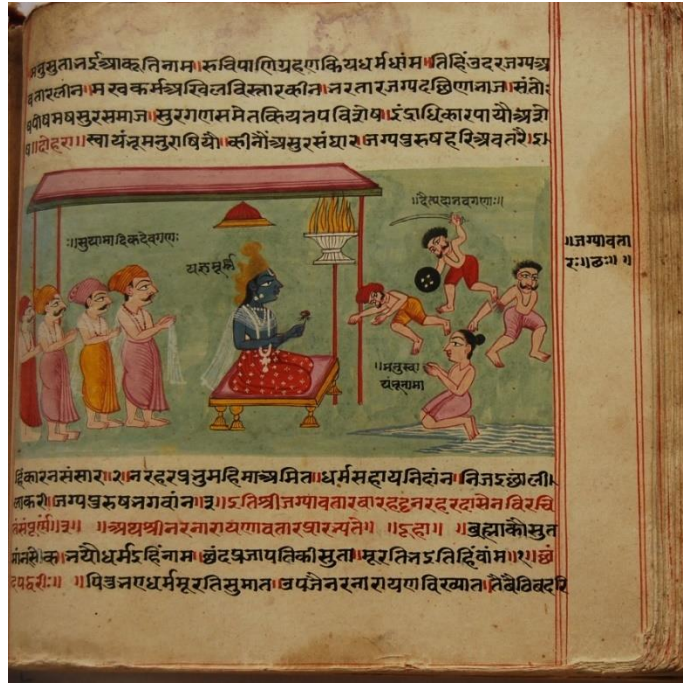 मनुसुता नऽई आकूति नाम ॥ रुचि पाणिग्रहण किय धर्म धांम ॥ तिहिं उदर जग्प अ
वतार लीन ॥ मख कर्म अखिल विस्तार कीन ॥ नरतार जग्प दछिणा नाज ॥ संतोः
ष पोष मष सुर समाज ॥ सुरगण समेत किय तप विशेष ॥ इंद्राधिकार पायौ अशे
ष ॥ दोहरा ॥ स्वायंनूमनु राषियौ ॥ कीनौं असुर संघार ॥ जग्प पुरुष हरि अवतरे ॥
॥दैत्यदानवगणाः॥
॥सुयामादिकदेवगणः
यज्ञमूर्त्ति
॥मनुस्वा
यंनूनामा
॥जग्पावता
रः॥
हिंकारन संसार ॥२॥ नरहर प्रनु महिमा अमित ॥ धर्म सहाय निदांन ॥ निज इछा ली
ला करी ॥ जग्प पुरुष नगवांन ॥३॥ इति श्री जग्पावतार बारहट्ट नरहरदासेन विरचि
तं संपूर्णं ॥ अथ श्री नरनारायणावतार प्रारन्यते ॥ ॥ ब्रह्मा कौ सुत
नयौ धर्म इहिं नाम ॥ छंद प्रजापति की सुता ॥ मूरति नऽ तिहिं वांम ॥१॥ छं
द पद्धरीः ॥ ॥ पितु नए धर्म मूरति सुमात ॥ उपजे नरनारायण विख्यात ॥